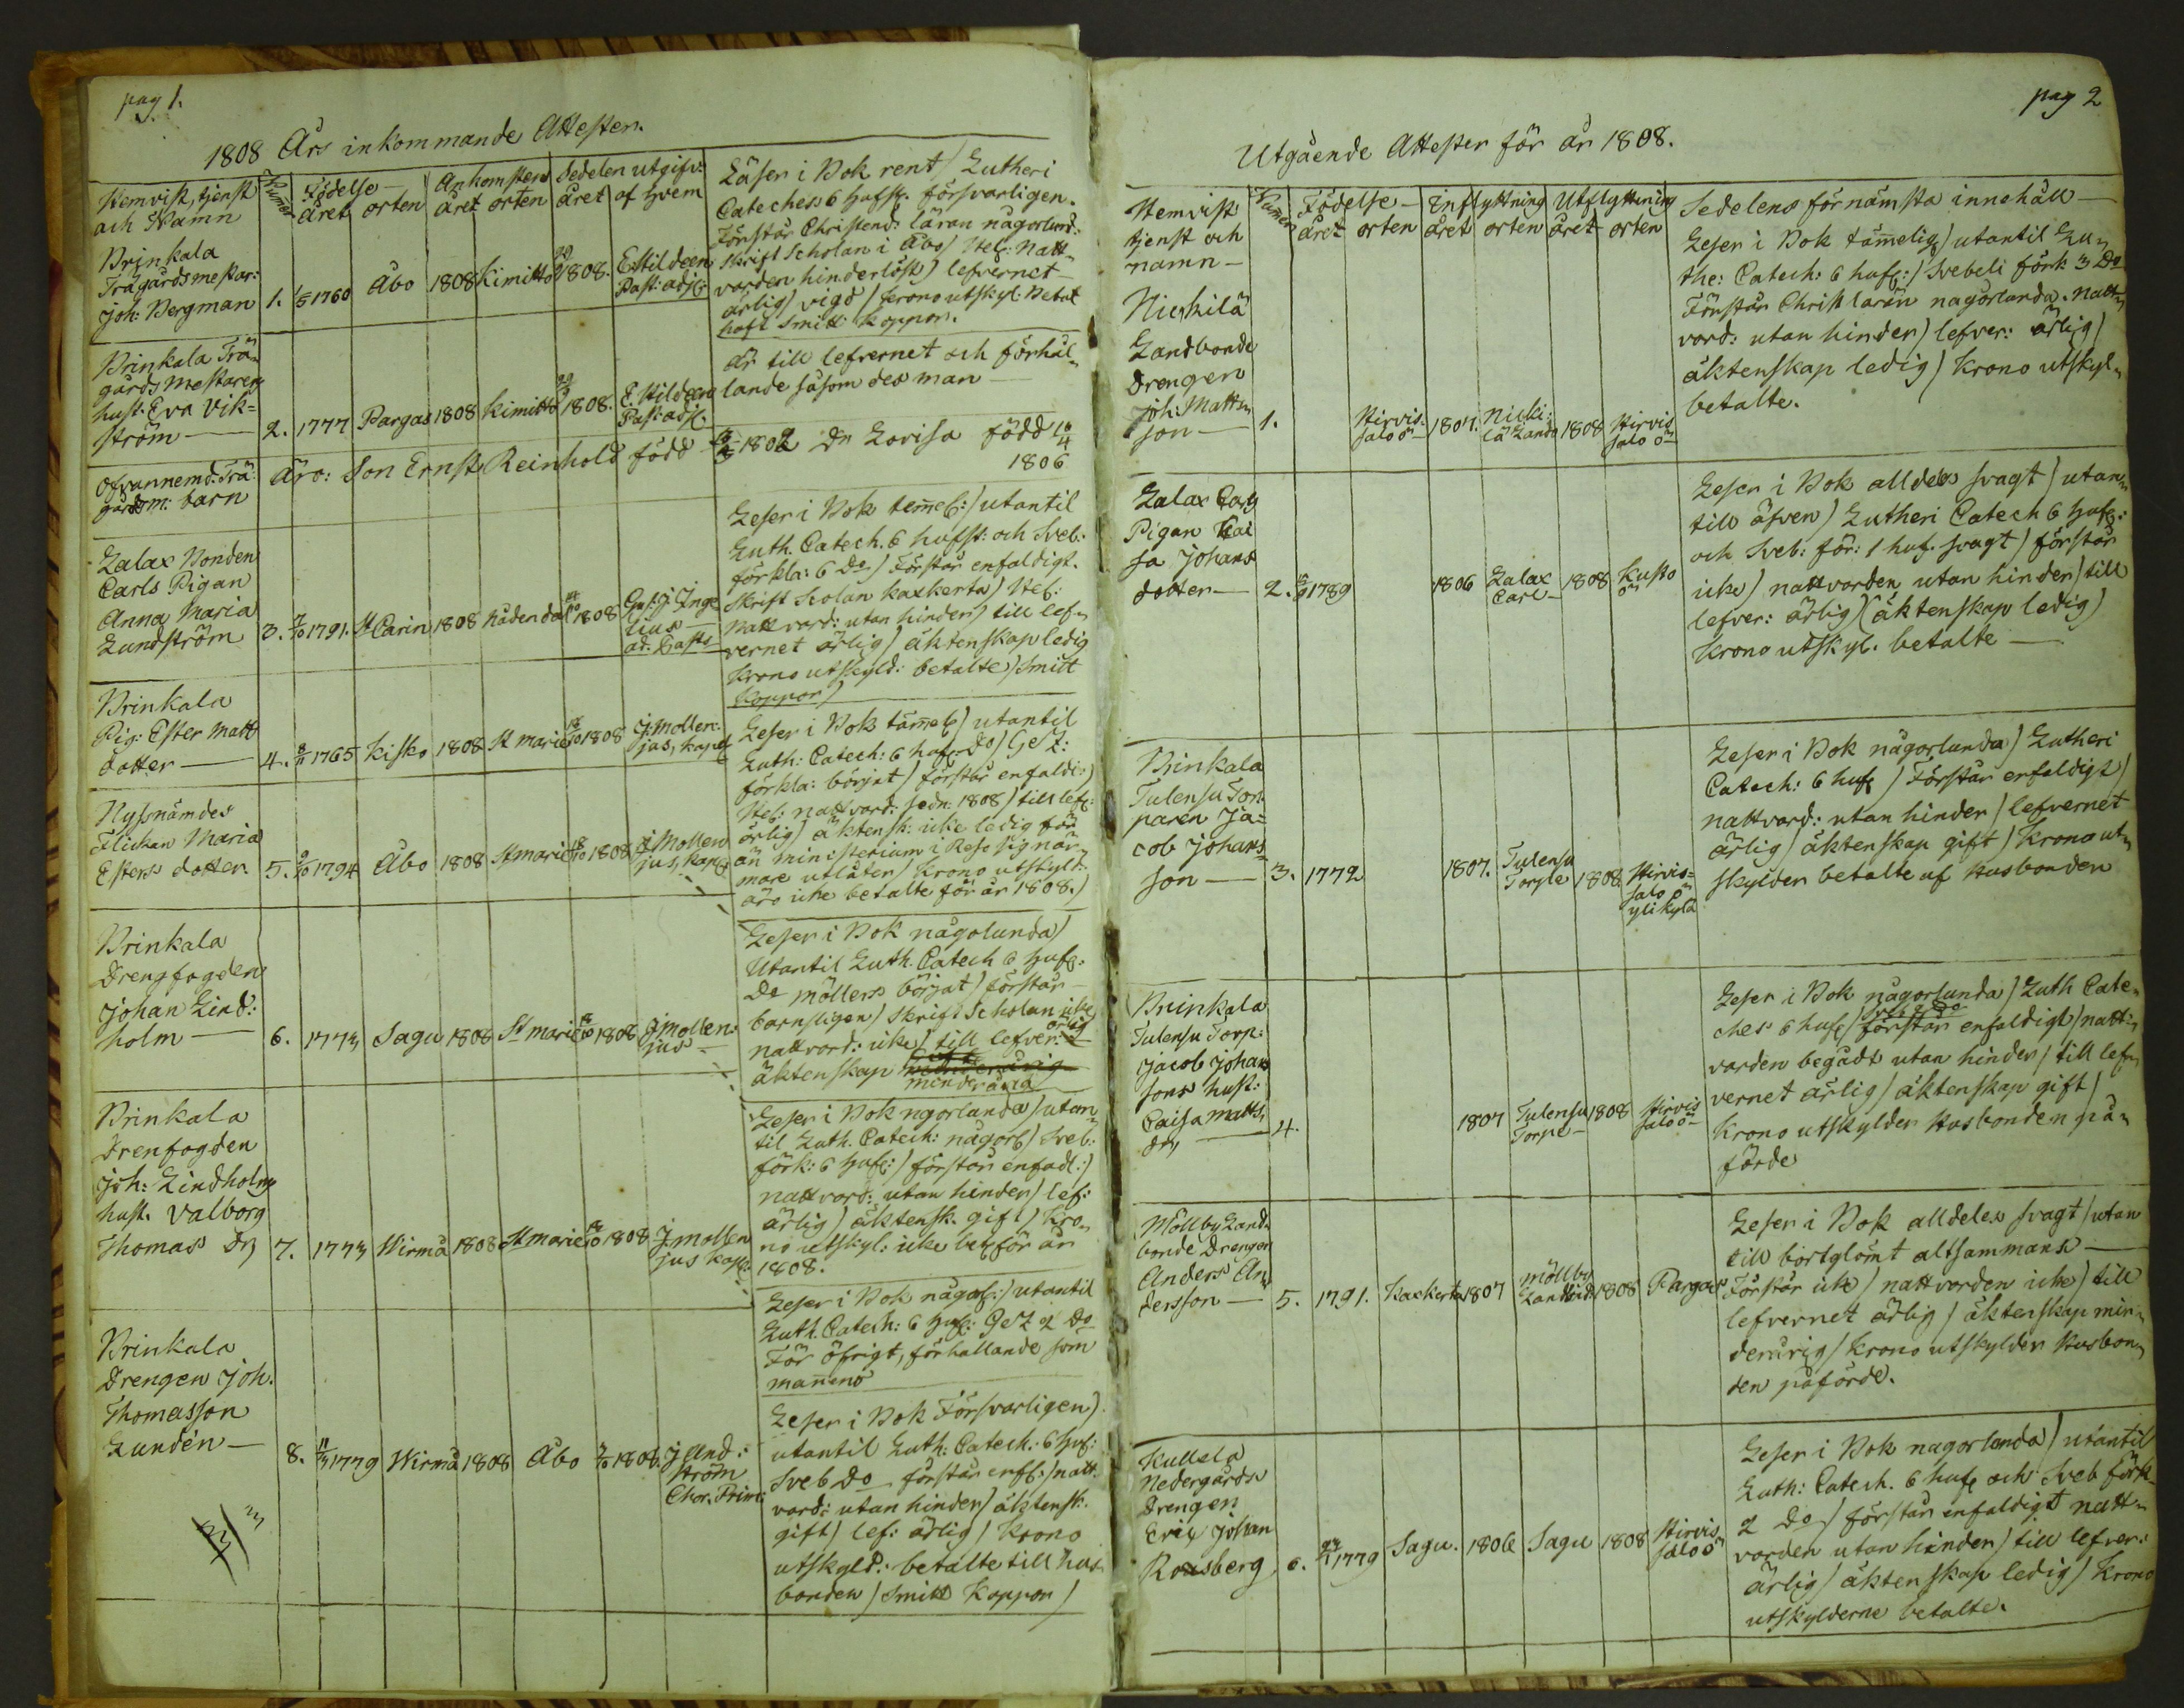 pag 1.
1808 Års inkommande Attester.
Hemvist, tjenst
och Namn
Numer
Födelse
året orten
Ankomsten
året orten
Sedelen utgifv:
året af hvem
Brinkala
Trägårdsmestar:
Joh: Bergman 1. 1760 Åbo 1808 Kimitto 1808. E Hildeen
Past: adj:
Läser i Bok rent / Lutheri
Cateches 6 hufst. försvarligen.
Förstår Christend: läran någorlund:
Skrift Scholan i Åbo / Hel: Natt-
varden hinderlöst) lefvernet
ärlig) vigd / krono utskyl: Betalt
haft Smitt koppor.
Brinkala Trä
gårds Mestaren
hust: Eva Vik=
ström — 2. 1777 Pargas 1808 Kimitto 1808. E. Hildeen
Past: adj:
är till lefvernet och förhål
lande såsom des man —
Ofvannemd: Trä:
gårdsm: barn
Äro: Son Ernst Reinhold född 1802 Dr Lovisa född 10/4
1806
Lalax Bonden
Carls Pigan
Anna Maria
Lundström 3. 1791. St Carin 1808 Nådendal 1808
Leser i Bok temel:/ utantil
Luth. Catech. 6 hufst: och Sveb.
förkla: 6 Do) Förstår enfaldigt.
Skrift Scolan kaxkerta) Hel:
Nattvard: utan hinder) till lef
vernet ärlig) äktenskap ledig
krono utskyld: betalte) Smitt
koppor)
Brinkala
Pig: Ester Matts
dotter — 4. 1765 Kisko 1808 St marie 1808 J: Mollen:
jus, kapel
Leser i Bok tämel) utantil
Luth: Catech: 6 huf: Do)
förkla: börjat) förstår enfaldi:)
Hel: nattvard: sedn: 1808) till lef:
ärlig) äktensk: icke ledig för
än ministerium i Reso sig när
mare utlåter) krono utskyld:
äro icke betalte för år 1808.)
Nyssnämdes
Flickan Maria
Esters dotter 5. 1794 Åbo 1808 St marie 1808 J Mollen
jus, kapel
Leser i Bok någolunda)
Utantil Luth. Catech 6 huf:
Do möllers börjat) förstår
barnsligen) Skrift Scholan icke
nattvard: icke) till lefver: ärlig
äktenskap
minderårig
Brinkala
Drengfogden
Johan Lind:
holm — 6. 1773 Sagu 1808 St marie 1808 J Mollen:
jus
Leser i Bok ngorlanda) utan
til Luth. Catech: någorl) Sveb:
förk: 6 huf:) förstår enfadl:)
nattvard: utan hinder) lef:
ärlig) äktensk. gift) kro
no utskyl: icke bet för år
1808.
Brinkala
Drenfogden
Joh: Lindholm
hust. Valborg
Thomas Dr 7. 1773 Wirmå 1808 St marie 1808 J: Mollen
jus kapl:
Leser i Bok någorl:) utantil
Luth. Catech: 6 huf: 2 Do
För öfrigt, förhallande som
mannens
Brinkala
Drengen Joh.
Thomasson
Lundén — 8. 1779 Wirmå 1808 Åbo 1808. J: Lind:
ström
Chor. Prim:
Leser i Bok Försvarligen)
utantil Luth: Catech. 6 huf:
Sveb Do förstår enfl:) natt
vard: utan hinder) äktensk:
gift) lef: ärlig) krono
utskyld: betalte till hus
bonden) Smitt koppor)
pag 2
Utgående Attester för år 1808.
Hemvist
tjenst och
namn —
Numer
Födelse
året orten
Inflyttning
året orten
Utflyttning
året orten
Sedelens förnämsta innehåll —
Nickilä
Landbonde
Drengen
Joh: Matts
son — 1. Hirvis
salo ö 1807. Nicki:
lä Lands 1808 Hirvis
salo ö
Leser i Bok tämelig) utantil Lu
the: Catech: 6 huf:) Svebeli förk 3 Do
Förstår Christ läran någorlanda. Natt
vard: utan hinder) lefver: ärlig)
äktenskap ledig) krono utskyl
betalte.
Lalax Carl
Pigan Cai
sa Johans
dotter — 2. 1789 1806 Lalax
Carl 1808 Kusto
ö
Leser i Bok alldeles svagt) utan
till äfven) Lutheri Catech 6 huf:
och Sveb: för: 1 huf. svagt) förstår
icke) nattvarden utan hinder) till
lefver: ärlig) äktenskap ledig)
krono utskyl. betalte —
Brinkala
Tulensu Tor
paren Ja=
cob Johans
son — 3. 1772 1807. Tulensu
Torple 1808. Hirvis=
salo ö
ylikylä
Leser i Bok någorlunda) Lutheri
Catech: 6 huf) Förstår enfaldigt)
nattvard: utan hinder) lefvernet
ärlig) äktenskap gift) krono ut
skylder betalte af Husbonden
Brinkala
Tulensu Torp:
Jacob Johans
sons hust:
Caisa Matts
Dr — 4. 1807 Tulensu
Torpe 1808 Hirvis
salo ö
Leser i Bok någorlunda) Luth Cate
ches 6 huf) förstår enfaldigt) natt
varden begådt utan hinder) till lef
vernet ärlig) äktenskap gift)
krono utskylder Husbonden på
förde
Möllby Land
bonde Drengen
Anders An
dersson — 5. 1791. Kaxkerta 1807 Möllby
Landbd. 1808 Pargas
Leser i Bok alldeles svagt) utan
till bortglömt altsammans —
Förstår icke) nattvarden icke) till
lefvernet ärlig) äktenskap min
derårig) krono utskylder Husbon
den påförde.
Kullela
Nedergårds
Drengen
Eric Johan
Rosberg 6. 1779 Sagu. 1806 Sagu 1808 Hirvis
salo ö
Leser i Bok nagorlanda) utantil
Luth: Catech. 6 huf och Sveb förk
2 Do) förstår enfaldigt natt
varden utan hinder) till lefver:
ärlig) äktenskap ledig) krono
utskylderne betalte.